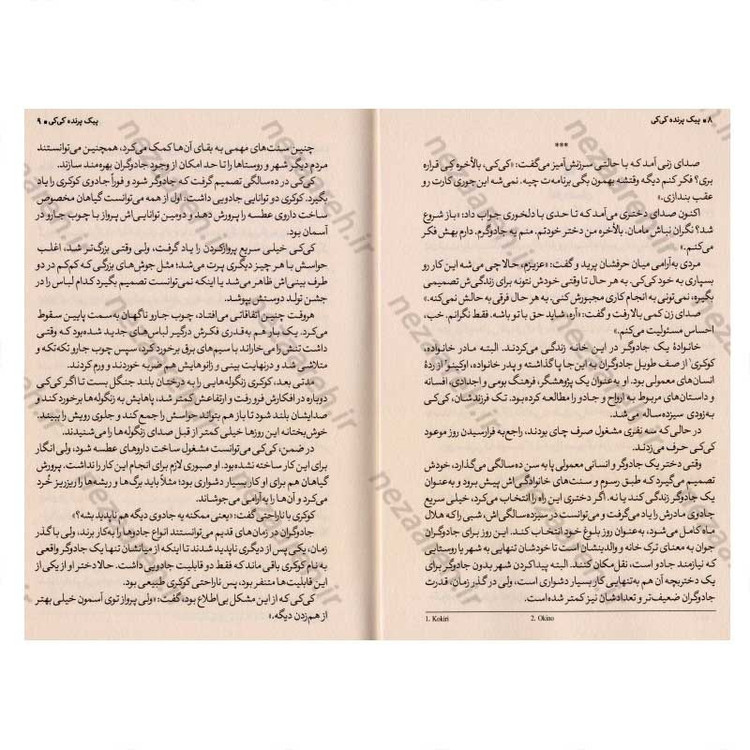 ۸ ■ پیک پرنده کی‌کی
***
صدای زنی آمد که با حالتی سرزنش‌آمیز می‌گفت: «کی‌کی، بالأخره کی قراره
بری؟ فکر کنم دیگه وقتشه بهمون بگی برنامه‌ت چیه. نمی‌شه این‌جوری کارت رو
عقب بندازی.»
اکنون صدای دختری می‌آمد که تا حدی با دلخوری جواب داد: «باز شروع
شد؟ نگران نباش مامان. بالأخره من دختر خودتم. منم یه جادوگرم. دارم بهش فکر
می‌کنم.»
مردی به‌آرامی میان حرفشان پرید و گفت: «عزیزم، حالا چی می‌شه این کار رو
بسپاری به خود کی‌کی. به هر حال تا وقتی خودش نتونه برای زندگی‌ش تصمیمی
بگیره، نمی‌تونی به انجام کاری مجبورش کنی. به هر حال فرقی به حالش نمی‌کنه.»
صدای زن کمی بالا رفت و گفت: «آره، شاید حق با تو باشه. فقط نگرانم. خب،
احساس مسئولیت می‌کنم.»
خانوادهٔ یک جادوگر در این خانه زندگی می‌کردند. البته مادر خانواده،
کوکری¹ از صف طویل جادوگران به این‌جا پا گذاشته و پدر خانواده، اوکینو² از ردهٔ
انسان‌های معمولی بود. او به‌عنوان یک پژوهشگر، فرهنگ بومی و اجدادی، افسانه
و داستان‌های مربوط به ارواح و جادو را مطالعه کرده‌بود. تک فرزندشان، کی‌کی
به‌زودی سیزده‌ساله می‌شد.
در حالی‌که سه نفری مشغول صرف چای بودند، راجع‌به فرارسیدن روز موعود
کی‌کی حرف می‌زدند.
وقتی دختر یک جادوگر و انسانی معمولی پا به سن ده‌سالگی می‌گذارد، خودش
تصمیم می‌گیرد که طبق رسوم و سنت‌های خانوادگی‌اش پیش برود و به‌عنوان
یک جادوگر زندگی کند یا نه. اگر دختری این راه را انتخاب می‌کرد، خیلی سریع
جادوی مادرش را یاد می‌گرفت و می‌توانست در سیزده‌سالگی‌اش، شبی را که هلال
ماه کامل می‌شود، به‌عنوان روز بلوغ خود انتخاب کند. این روز برای جادوگران
جوان به معنای ترک خانه و والدینشان است تا خودشان تنهایی به شهر یا روستایی
که نیازمند جادو است، نقل‌مکان کنند. البته پیداکردن شهر بدون جادوگر برای
یک دختربچه آن هم به‌تنهایی کار بسیار دشواری است، ولی در گذر زمان، قدرت
جادوگران ضعیف‌تر و تعدادشان نیز کمتر شده‌است.
1. Kokiri 2. Okino
پیک پرنده کی‌کی ■ ۹
چنین سنت‌های مهمی به بقای آن‌ها کمک می‌کرد، همچنین می‌توانستند
مردم دیگر شهر و روستاها را تا حد امکان از وجود جادوگران بهره‌مند سازند.
کی‌کی در ده‌سالگی تصمیم گرفت که جادوگر شود و فوراً جادوی کوکری را یاد
بگیرد. کوکری دو توانایی جادویی داشت: اول از همه می‌توانست گیاهان مخصوص
ساخت داروی عطسه را پرورش دهد و دومین توانایی‌اش پرواز با چوب جارو در
آسمان بود.
کی‌کی خیلی سریع پروازکردن را یاد گرفت، ولی وقتی بزرگ‌تر شد، اغلب
حواسش با هر چیز دیگری پرت می‌شد؛ مثل جوش‌های بزرگی که کم‌کم در دو
طرف بینی‌اش ظاهر می‌شد یا اینکه نمی‌توانست تصمیم بگیرد کدام لباس را در
جشن تولد دوستش بپوشد.
هروقت چنین اتفاقاتی می‌افتاد، چوب جارو ناگهان به‌سمت پایین سقوط
می‌کرد. یک بار هم به‌قدری فکرش درگیر لباس‌های جدید شده‌بود که وقتی
داشت تنش را می‌خاراند با سیم‌های برق برخورد کرد، سپس چوب جارو تکه‌تکه و
متلاشی شد و درنهایت بینی و زانوهایش هم ضربه خوردند و ورم کردند.
مدتی بعد، کوکری زنگوله‌هایی را به درختان بلند جنگل بست تا اگر کی‌کی
دوباره در افکارش فرو رفت و ارتفاعش کمتر شد، پاهایش به زنگوله‌ها برخورد کند و
صدایشان بلند شود تا باز هم بتواند حواسش را جمع کند و جلوی رویش را ببیند.
خوش‌بختانه این روزها خیلی کمتر از قبل صدای زنگوله‌ها را می‌شنیدند.
در ضمن، کی‌کی می‌توانست مشغول ساخت داروهای عطسه شود، ولی انگار
برای این کار ساخته نشده‌بود. او صبوری لازم برای انجام این کار را نداشت. پرورش
گیاهان هم برای او کار بسیار دشواری بود؛ مثلاً باید برگ‌ها و ریشه‌ها را ریزریز خُرد
می‌کرد و آن‌ها را به‌آرامی می‌جوشاند.
کوکری با ناراحتی گفت: «یعنی ممکنه یه جادوی دیگه هم ناپدید بشه؟»
جادوگران در زمان‌های قدیم می‌توانستند انواع جادوها را به‌کار برند، ولی با گذر
زمان، یکی پس از دیگری ناپدید شدند تا اینکه از میانشان تنها یک جادوگر واقعی
به نام کوکری باقی ماند که فقط دو قابلیت جادویی داشت. حالا دختر او از یکی از
این قابلیت‌ها متنفر بود، پس ناراحتی کوکری طبیعی بود.
کی‌کی که از این مشکل بی‌اطلاع بود، گفت: «ولی پرواز توی آسمون خیلی بهتر
از هم‌زدن دیگه.»
nezaareh.ir